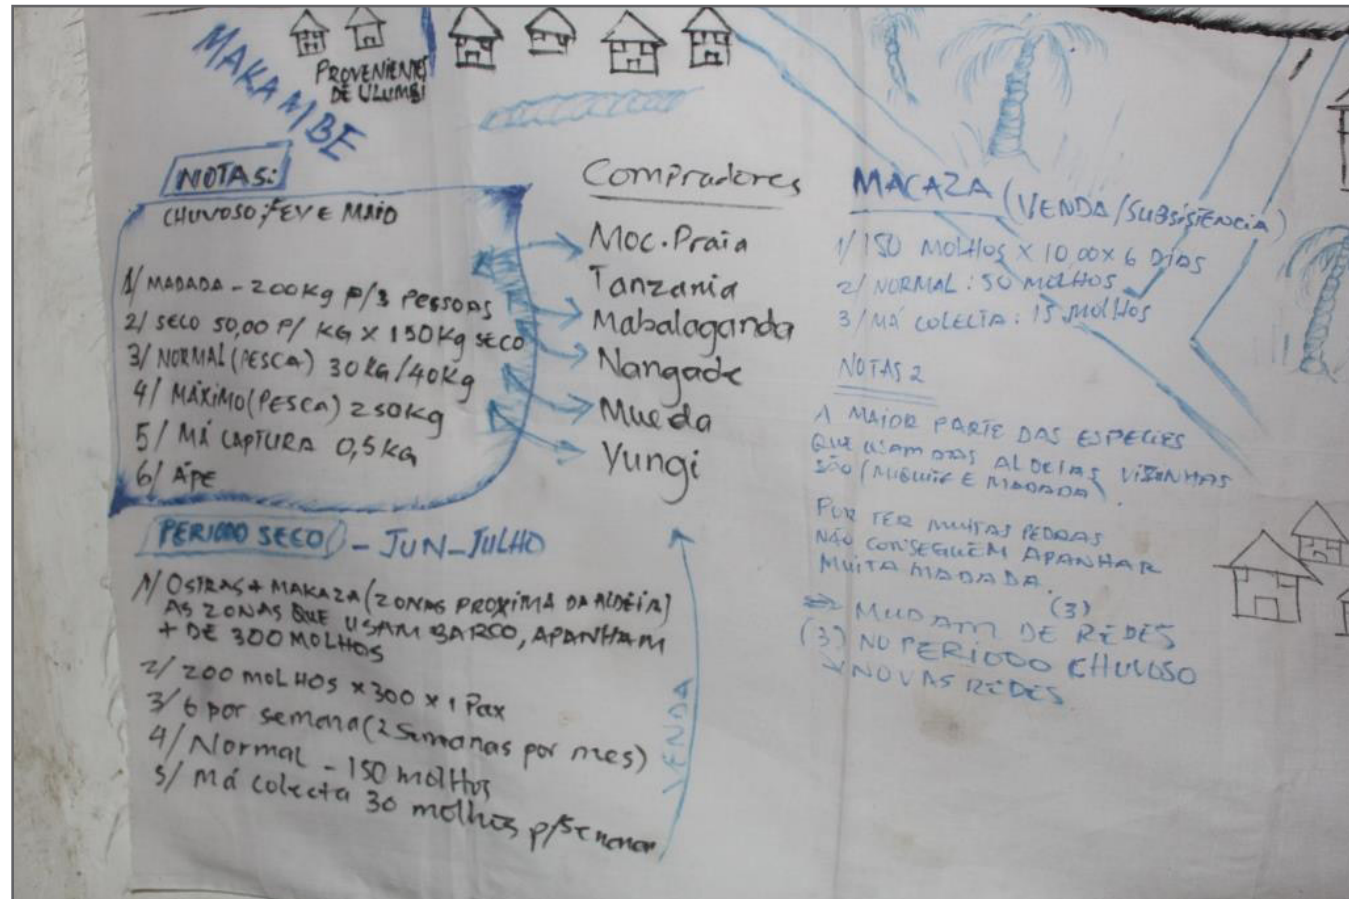 MAKAMBE
PROVENIENTES
DE ULUMBI
NOTAS:
CHUVOSO; FEV E MAIO
1/ MADADA - 200Kg P/3 PESSOAS
2/ SECO 50,00 P/ KG X 150Kg SECO
3/ NORMAL (PESCA) 30KG/40Kg
4/ MÁXIMO (PESCA) 250Kg
5/ MÁ CAPTURA 0,5KG
6/ ÁPE
PERIODO SECO - JUN-JULHO
1/ OSTRAS + MAKAZA (ZONAS PROXIMA DA ALDEIA)
AS ZONAS QUE USAM BARCO, APANHAM
+ DE 300 MOLHOS
2/ 200 MOLHOS X 300 X 1 Pax
3/ 6 por semana (2 Semanas por mes)
4/ Normal - 150 molhos
5/ Má colecta 30 molhos p/Semana
Compradores
Moc. Praia
Tanzania
Mabalaganda
Nangade
Mueda
Yungi
VENDA
MACAZA (VENDA/SUBSISTENCIA)
1/ 150 MOLHOS X 10,00 X 6 DIAS
2/ NORMAL: 50 MOLHOS
3/ MÁ COLECTA: 15 MOLHOS
NOTAS 2
A MAIOR PARTE DAS ESPECIES
QUE USAM DAS ALDEIAS VISINHAS
SÃO ( E MADADA)
POR TER MUITAS PEDRAS
NÃO CONSEGUEM APANHAR
MUITA MADADA.
(3)
=> MUDAM DE REDES
(3) NO PERIODO CHUVOSO
NOVAS REDES